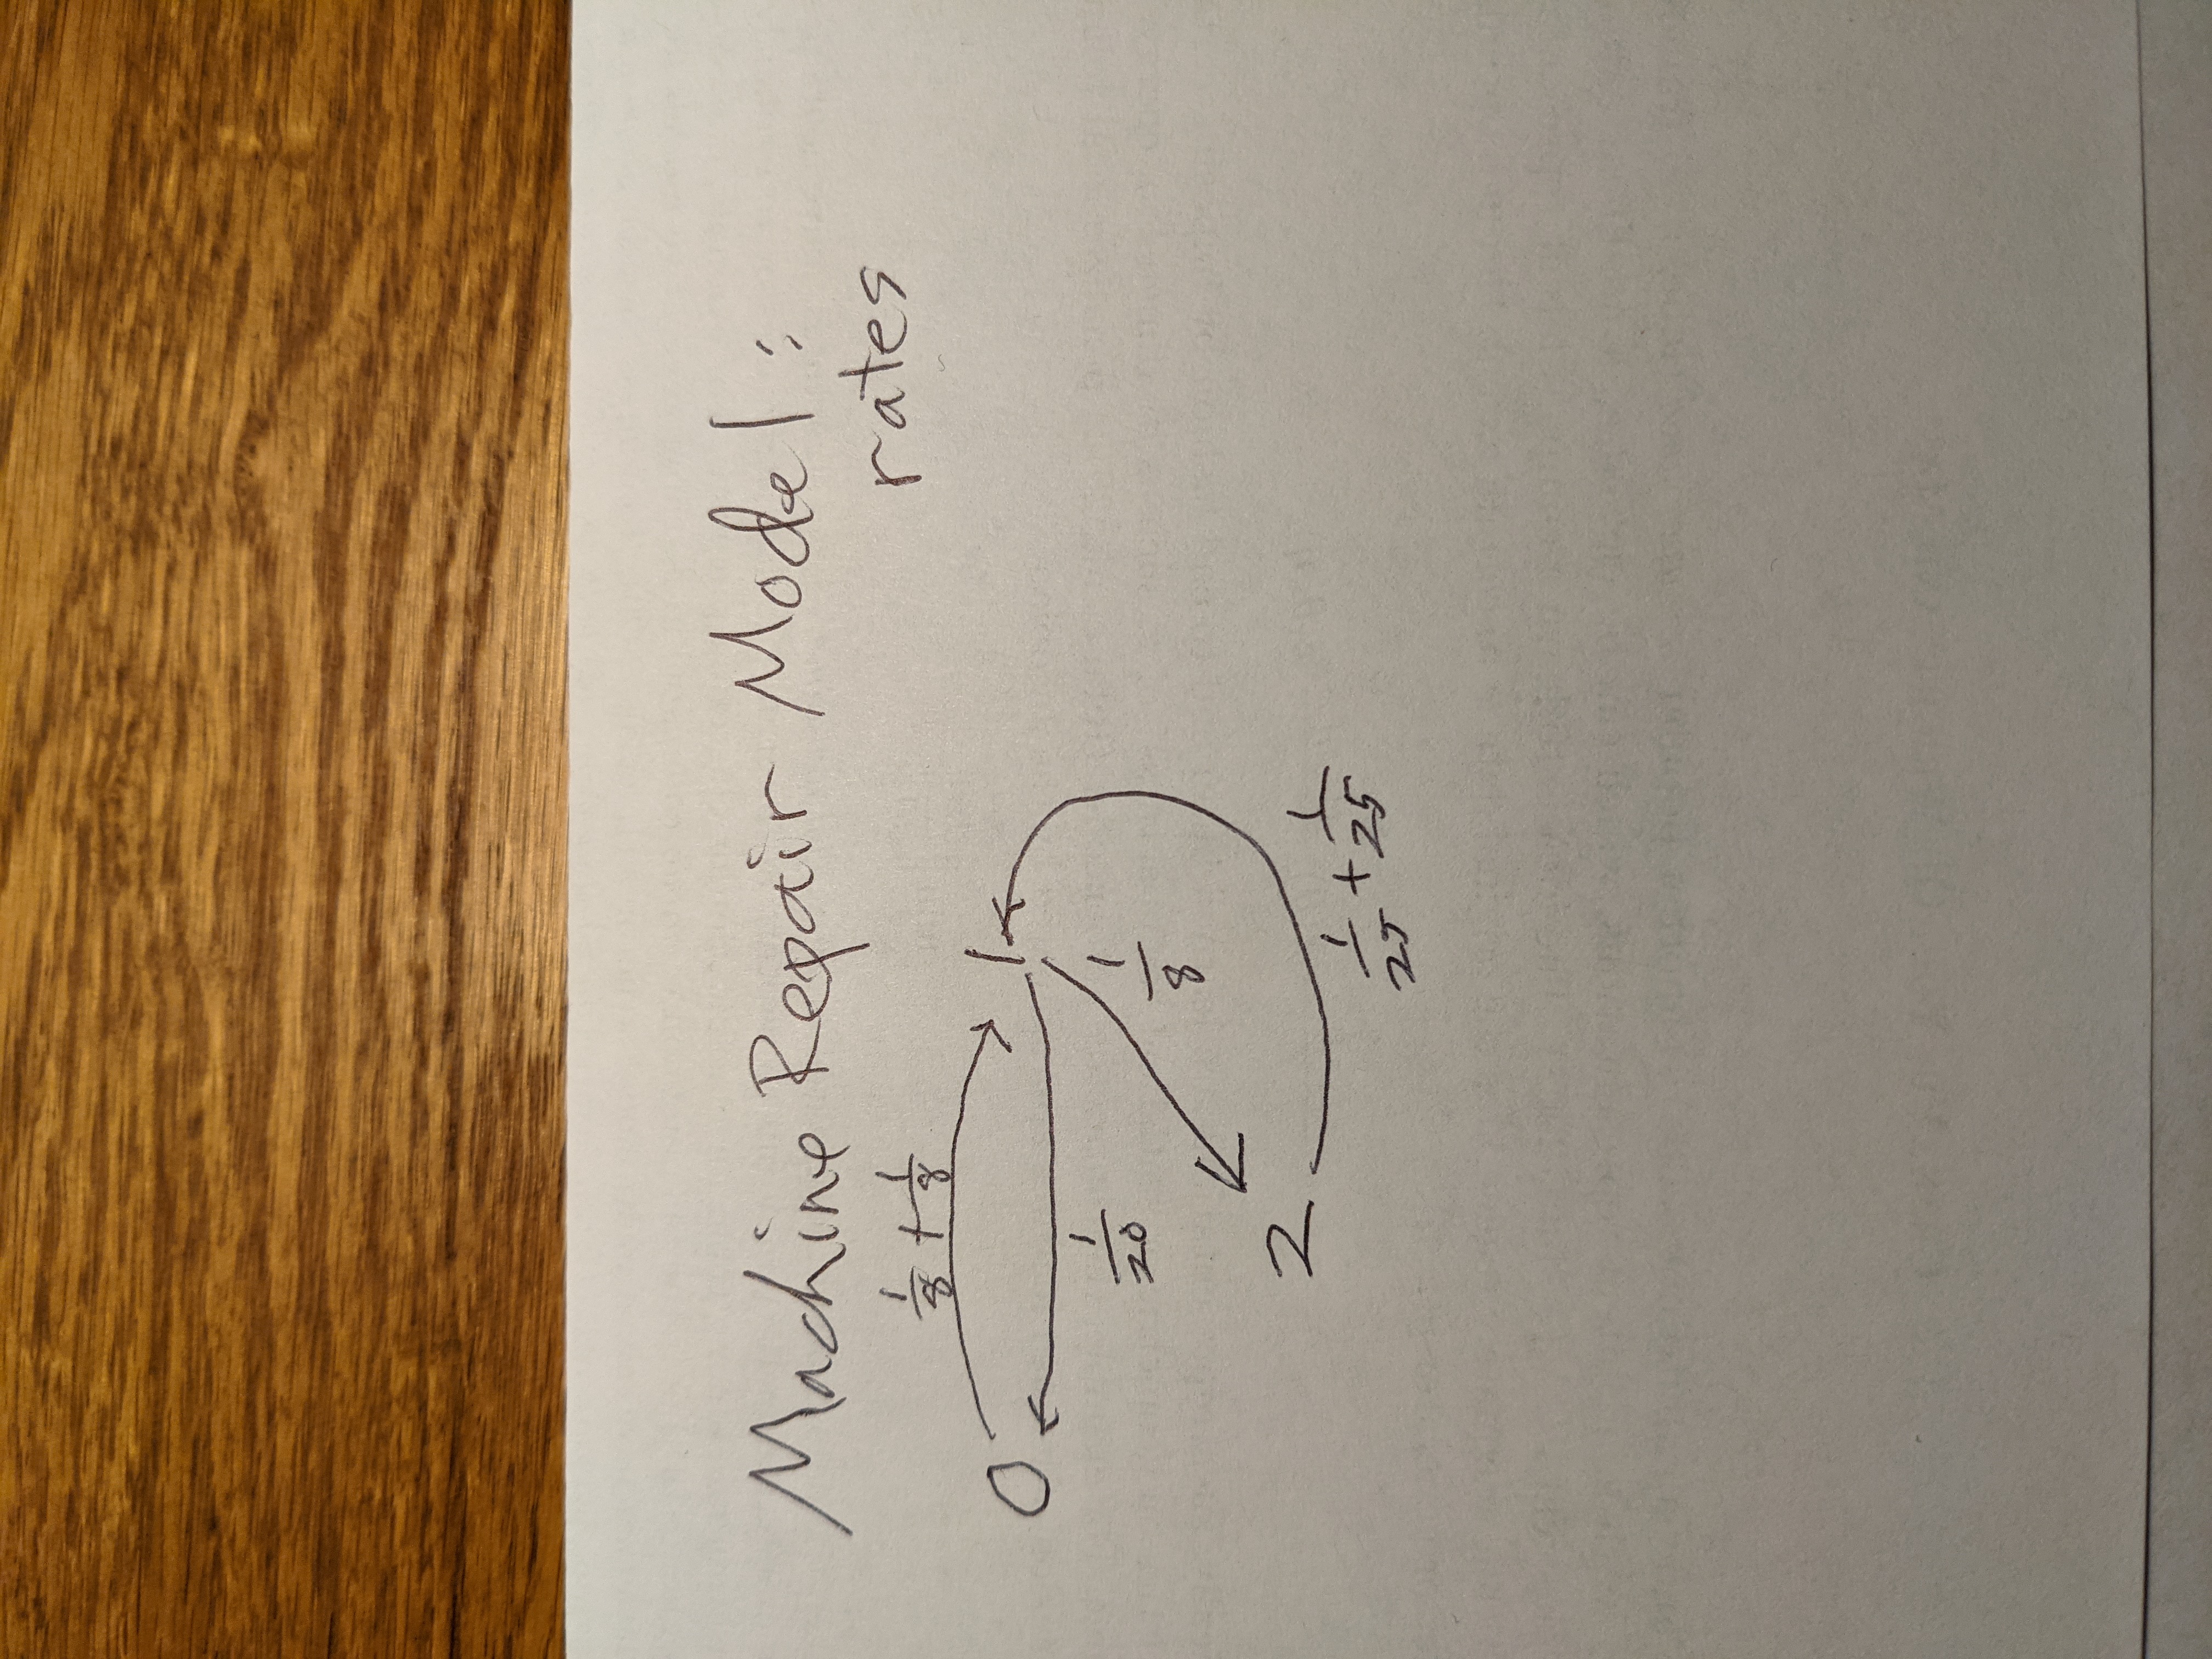 Machine Repair Model:
rates
1/8 + 1/8
0 1
1/20
1/8
2
1/25 + 1/25